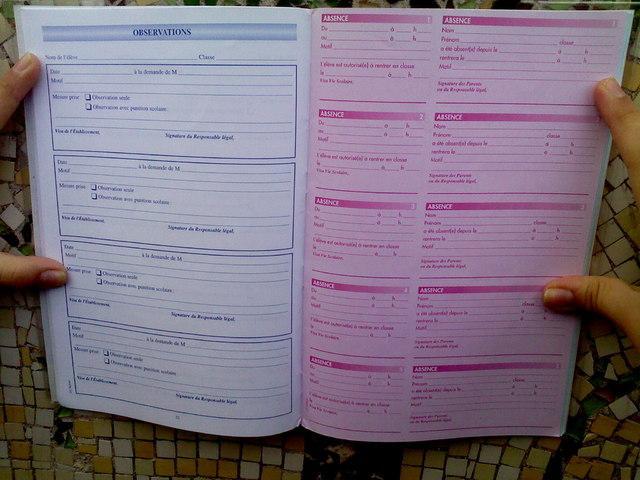 OBSERVATIONS
Nom de l'élève Classe
Date à la demande de M
Motif
Mesure prise Observation seule
Observation avec punition scolaire :
Visa de l'Établissement, Signature du Responsable légal,
Date à la demande de M
Motif
Mesure prise Observation seule
Observation avec punition scolaire :
Visa de l'Établissement, Signature du Responsable légal,
Date à la demande de M
Motif
Mesure prise Observation seule
Observation avec punition scolaire :
Visa de l'Établissement, Signature du Responsable légal,
Date à la demande de M
Motif
Mesure prise Observation seule
Observation avec punition scolaire
Visa de l'Établissement, Signature du Responsable légal,
ABSENCE 1
Du à h
au à h
Motif
L'élève est autorisé(e) à rentrer en classe
le à h
Visa Vie Scolaire,
ABSENCE 1
Nom
Prénom classe
a été absent(e) depuis le à h
rentrera le à h
Motif
Signature des Parents
ou du Responsable légal,
ABSENCE 2
Du à h
au à h
Motif
L'élève est autorisé(e) à rentrer en classe
le à h
Visa Vie Scolaire,
ABSENCE
Nom
Prénom classe
a été absent(e) depuis le à h
rentrera le à h
Motif
Signature des Parents
ou du Responsable légal,
ABSENCE 3
Du à h
au à h
Motif
L'élève est autorisé(e) à rentrer en classe
le à h
Visa Vie Scolaire,
ABSENCE
Nom
Prénom classe
a été absent(e) depuis le à h
rentrera le à h
Motif
Signature des Parents
ou du Responsable légal,
ABSENCE 4
Du à h
au à h
Motif
L'élève est autorisé(e) à rentrer en classe
le à h
Visa Vie Scolaire,
ABSENCE
Nom
Prénom classe
a été absent(e) depuis le à h
rentrera le à h
Motif
Signature des Parents
ou du Responsable légal,
ABSENCE 5
Du à h
au à h
Motif
L'élève est autorisé(e) à rentrer en classe
le à h
Visa Vie Scolaire,
ABSENCE
Nom
Prénom classe
a été absent(e) depuis le à h
rentrera le à h
Motif
Signature des Parents
ou du Responsable légal,